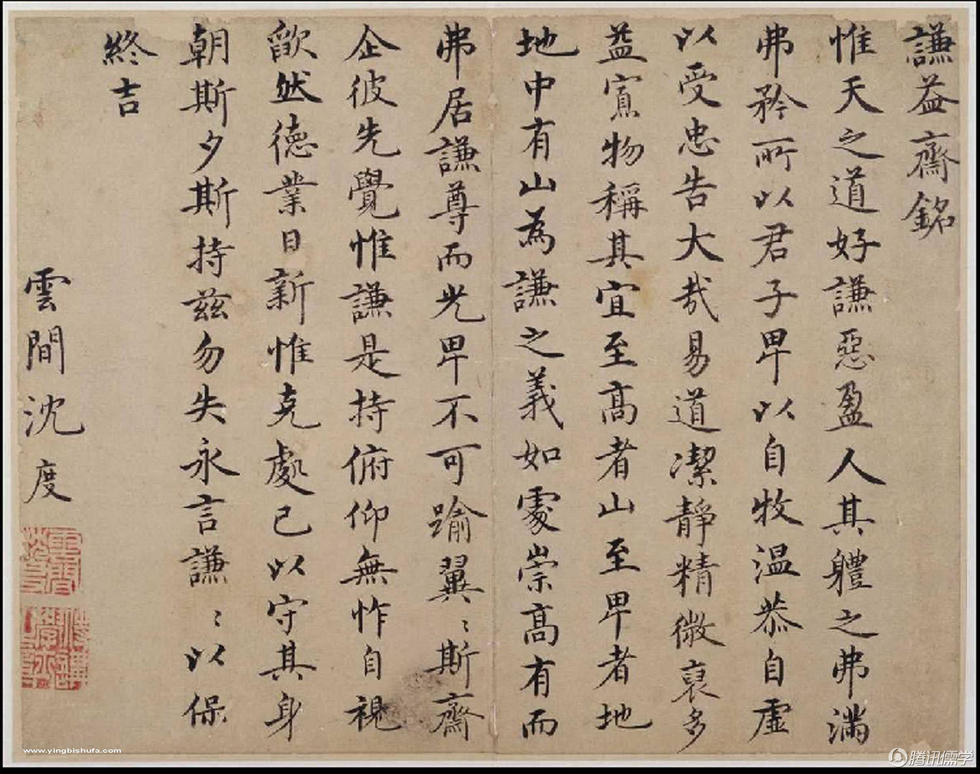 謙益齋銘
惟天之道好謙惡盈人其軆之弗滿
弗矜所以君子卑以自牧温恭自虛
以受忠告大哉易道潔靜精微裒多
益寡物稱其宜至髙者山至卑者地
地中有山為謙之義如處崇髙有而
弗居謙尊而光卑不可踰翼〻斯齋
企彼先覺惟謙是持俯仰無怍自視
歉然德業日新惟克處己以守其身
朝斯夕斯持兹勿失永言謙〻以保
終吉
雲間沈度
www.yingbishufa.com
腾讯儒学